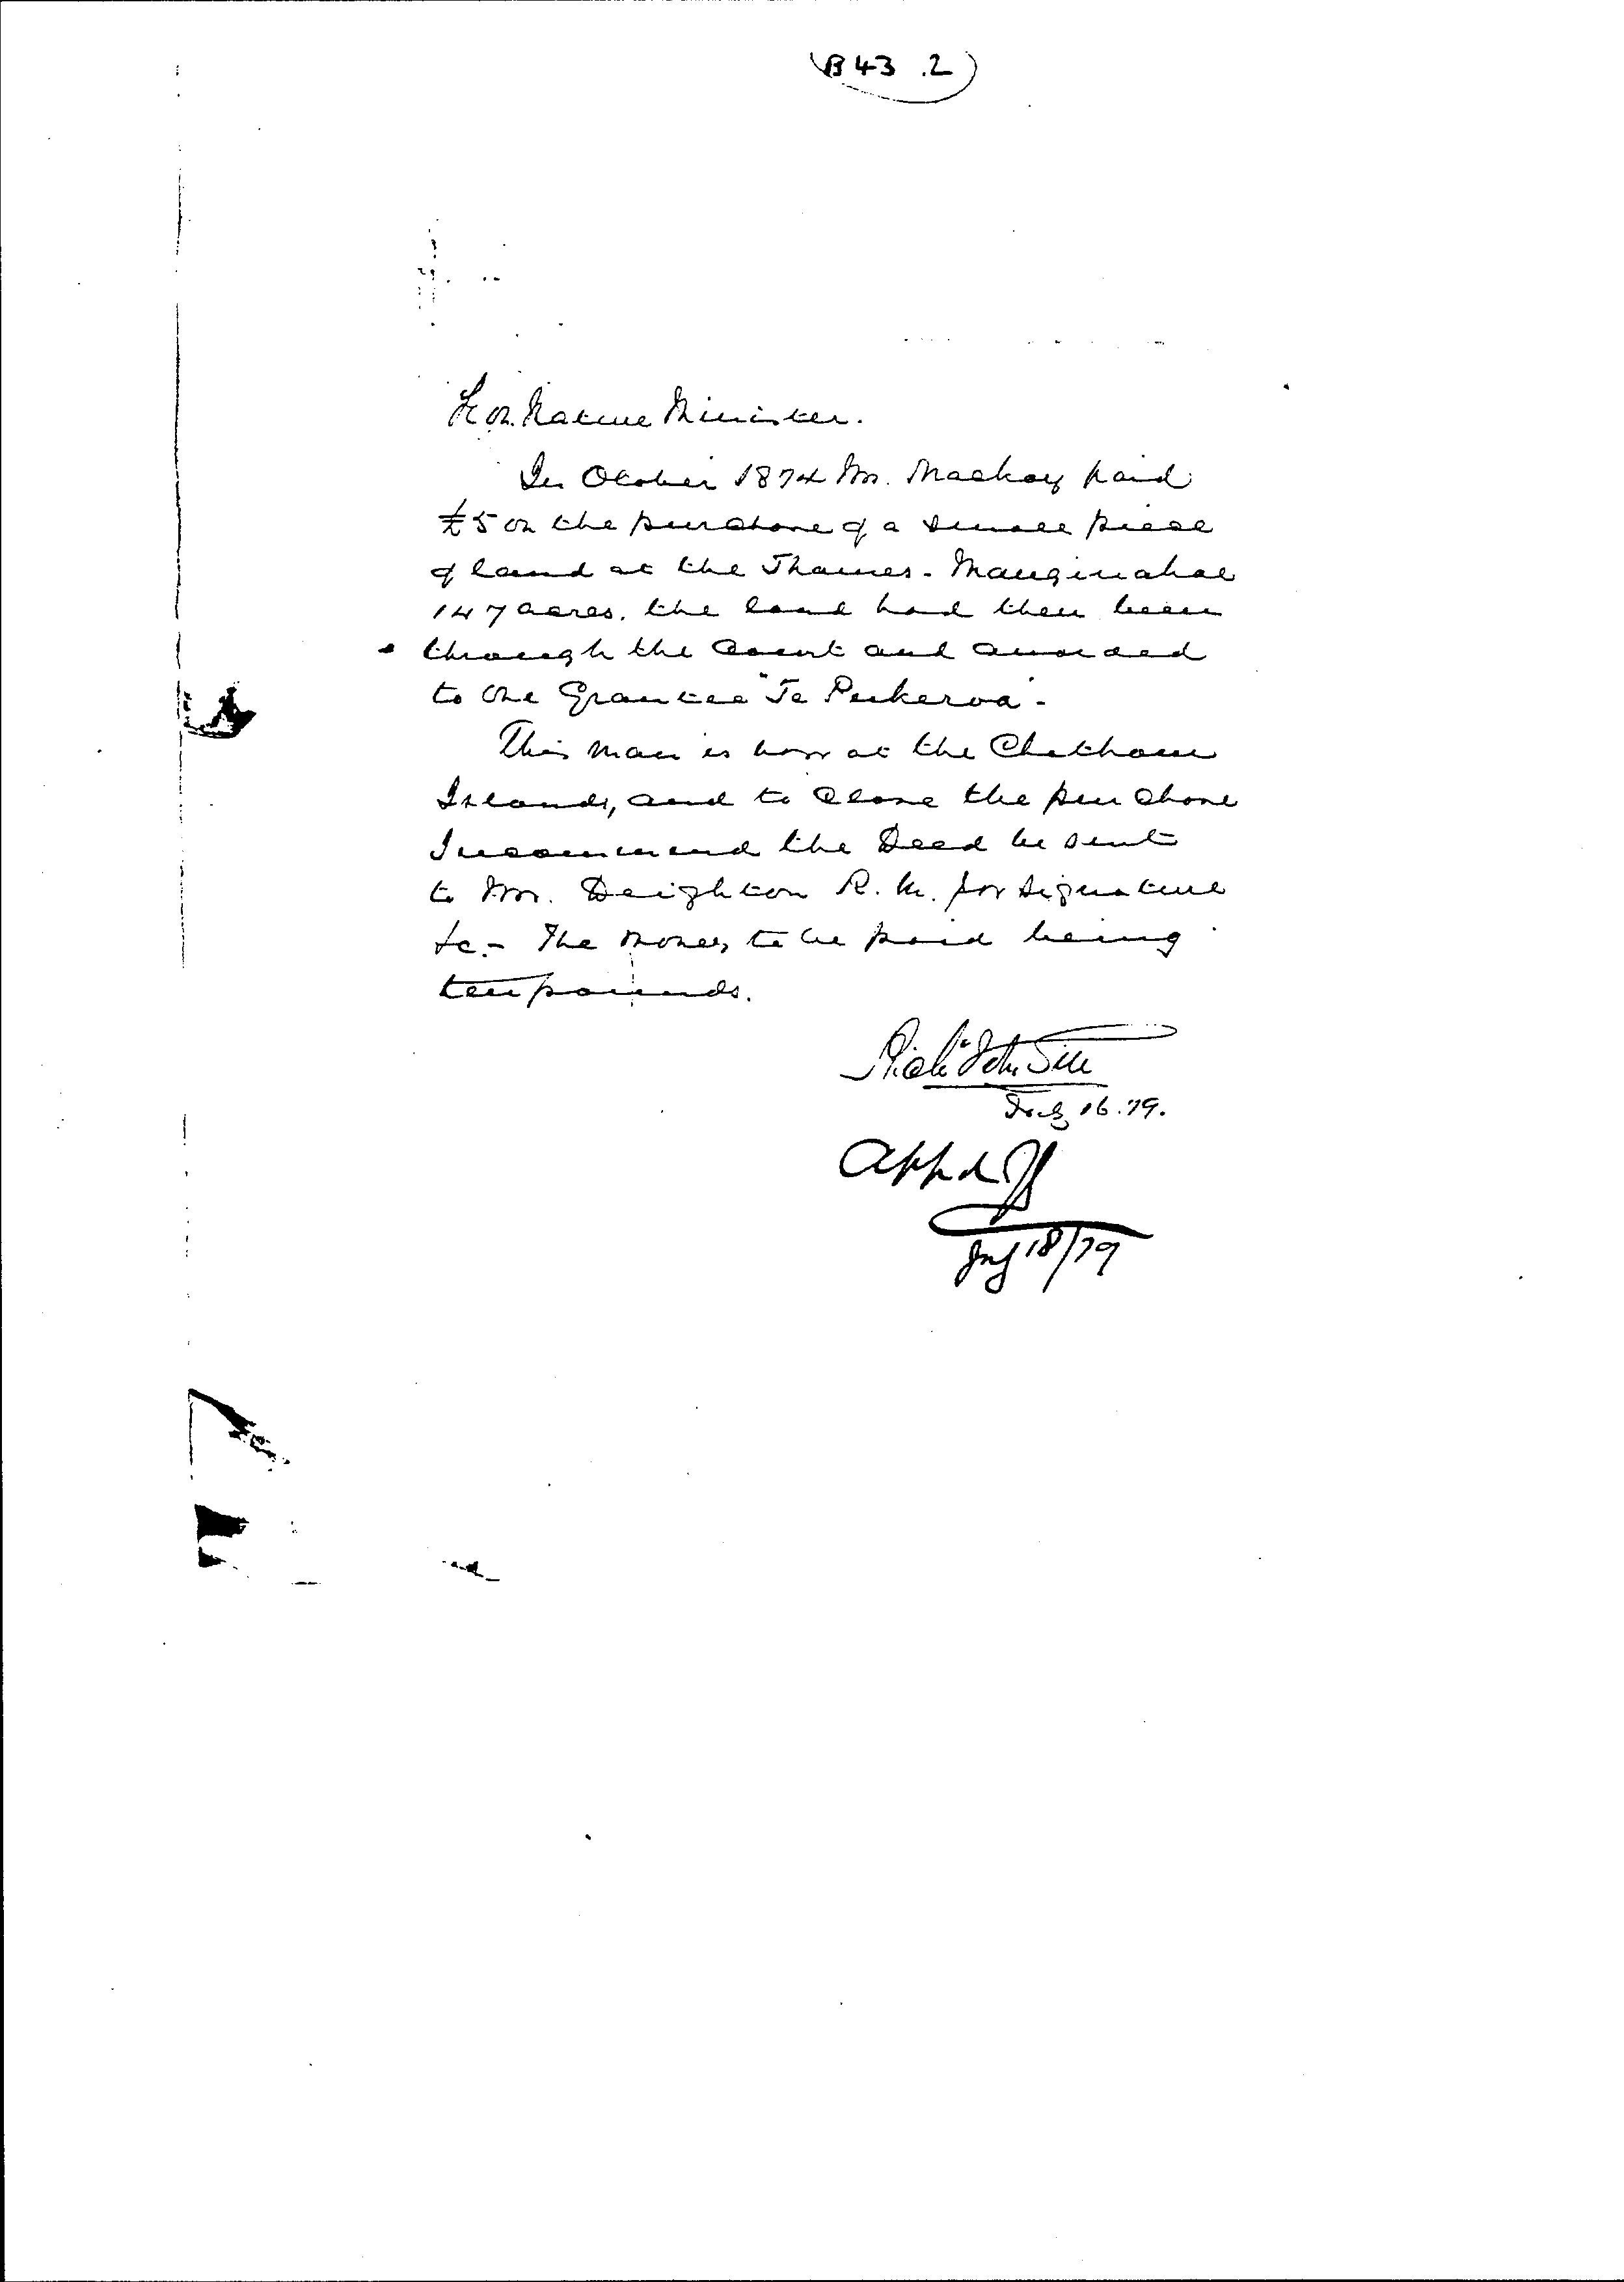 B 43 .2
Hon. Native Minister.
In October 1874 Mr. Mackay paid
£5 on the purchase of a small piece
of land at the Thames -
147 acres. the land had then been
through the Court and awarded
to one Grantee "Te Peukeroa" -
This man is now at the Chatham
Islands, and to close the purchase
I recommend the Deed be sent
to Mr. Deighton R. M. for signature
&c. - The money to be paid being
ten pounds.
Richd John Gill
July 16. 79.
Appd JS
July 18/79